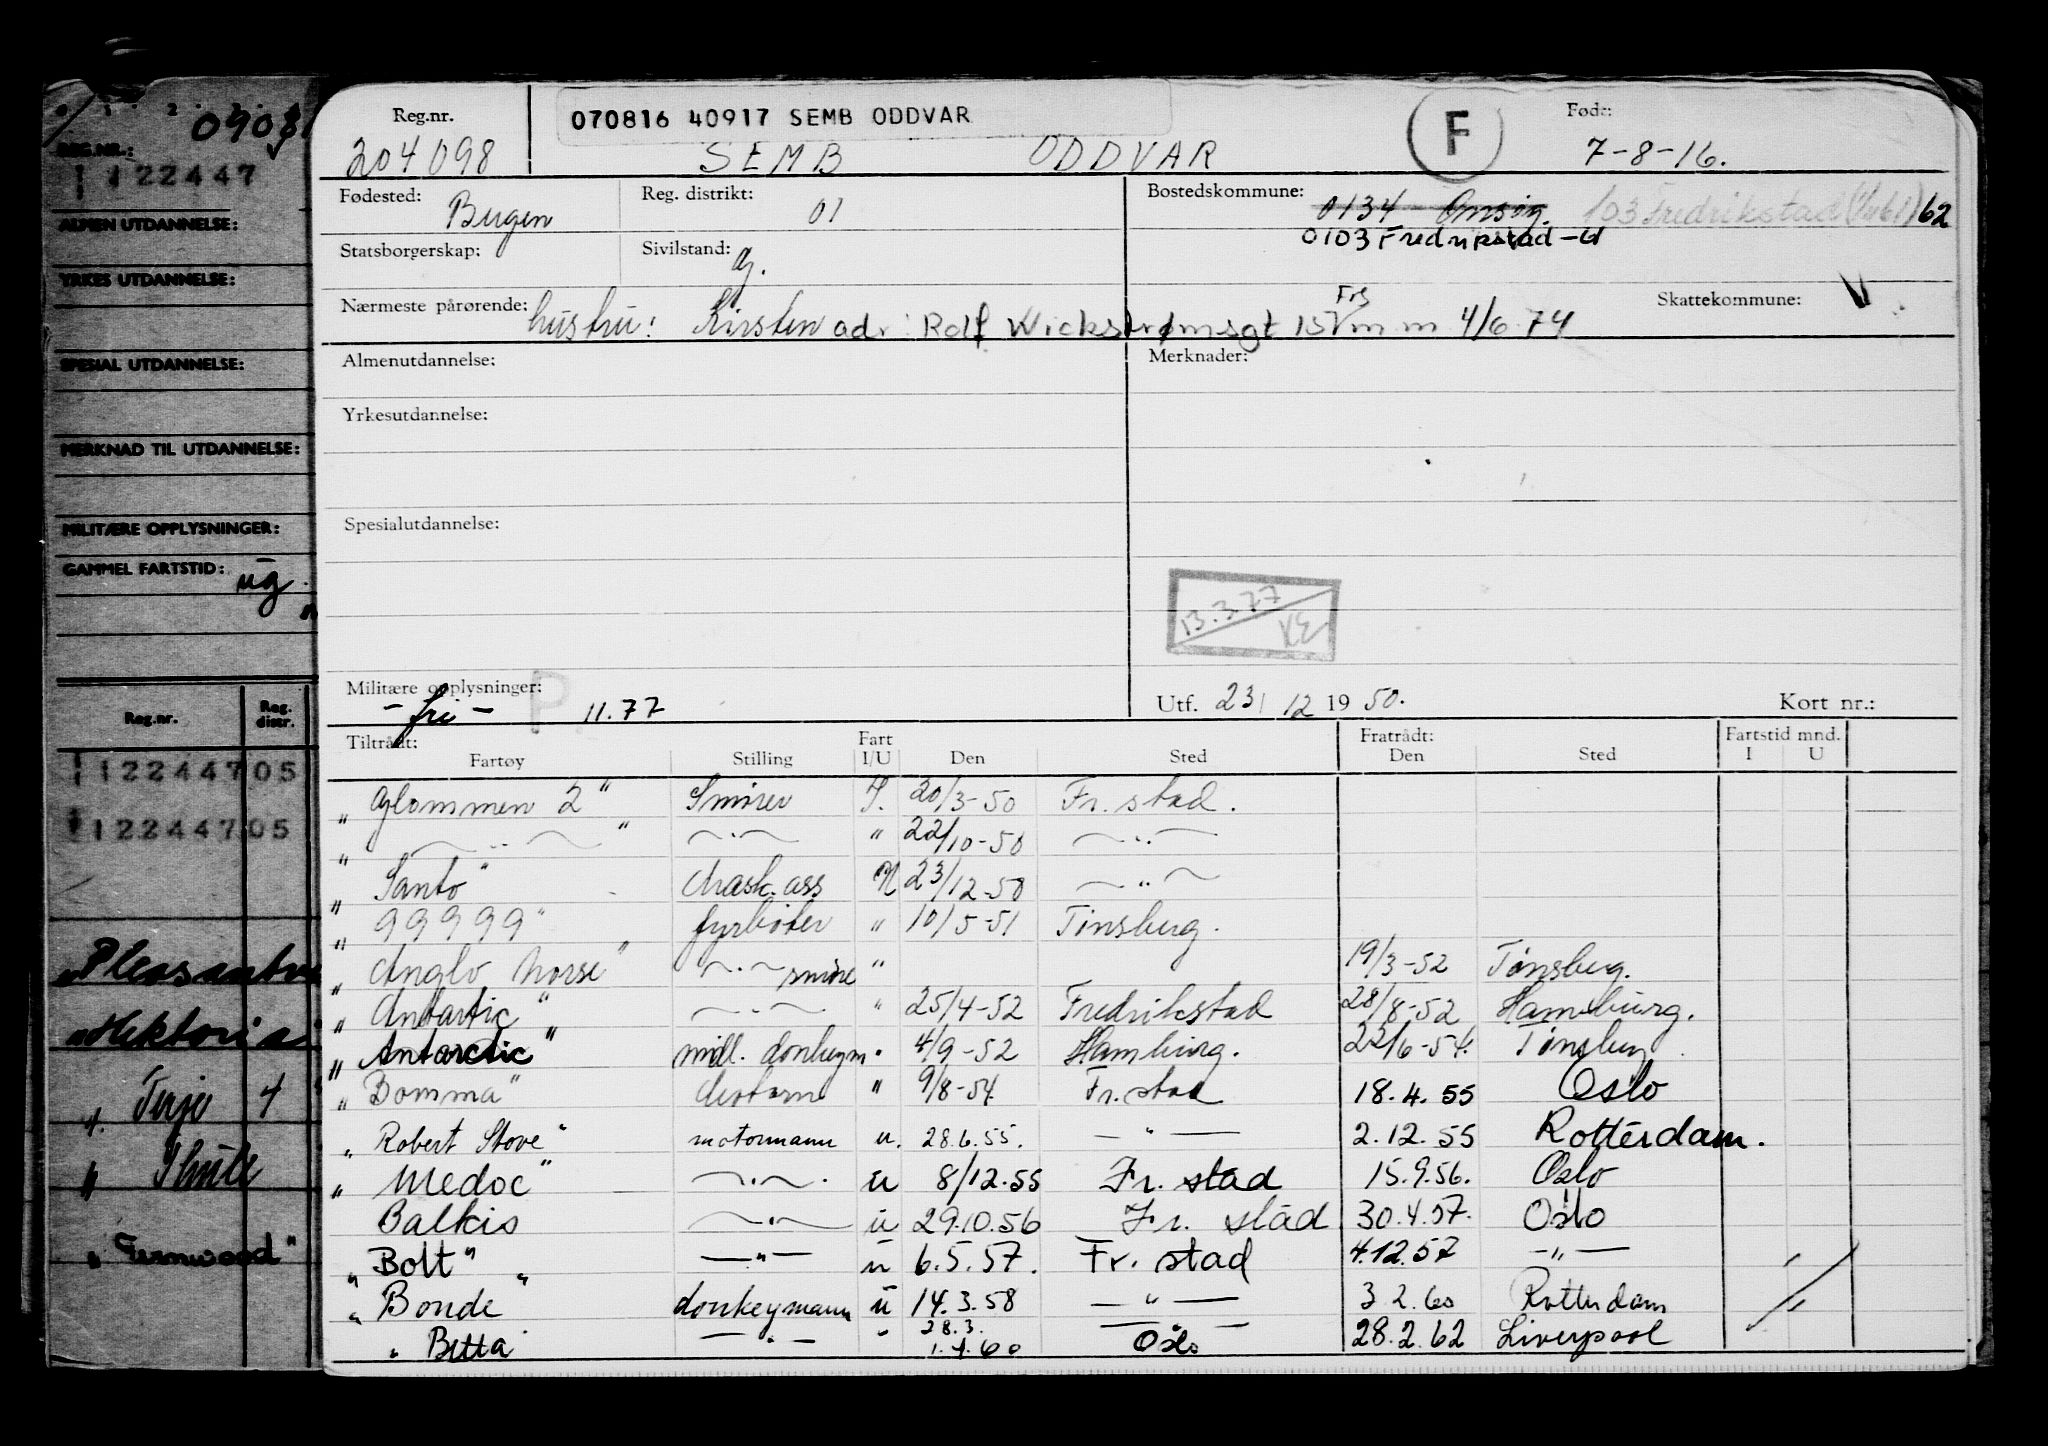 REG.NR.:
122447
ALMEN UTDANNELSE:
YRKES UTDANNELSE:
SPESIAL UTDANNELSE:
MERKNAD TIL UTDANNELSE:
MILITÆRE OPPLYSNINGER:
GAMMEL FARTSTID: ug
Reg.nr. Reg. distr.
122447 05
122447 05
"Hektoria"
" Terje 4
" Thule
" Fernwood"
Reg.nr. 070816 40917 SEMB ODDVAR F Født:
204098 SEMB ODDVAR 7-8-16.
Fødested: Bergen Reg. distrikt: 01 Bostedskommune: 0134 Onsøy. 103 Fredrikstad 62
0103 Fredrikstad
Statsborgerskap: Sivilstand: g.
Nærmeste pårørende: hustru: Kirsten adr: Rolf Wickstrømsgt 15 Frs m m 4/6 74 Skattekommune:
Almenutdannelse: Merknader:
Yrkesutdannelse:
Spesialutdannelse:
13.3.77 KE
Militære opplysninger: - fri - P 11.77 Utf. 23/12 1950. Kort nr.:
Tiltrådt: Fart Fratrådt: Fartstid mnd.
Fartøy Stilling I/U Den Sted Den Sted I U
" Glommen 2" Smører I. 20/3-50 Fr. stad.
" — " — " — " 22/10-50 — " —
" Santo" Mask. ass U 23/12-50 — " —
" 99999" fyrbøter " 10/5-51 Tønsberg.
" Anglo Norse" — " — smøre " 19/3-52 Tønsberg.
" Antartic" — " — " 25/4-52 Fredrikstad 28/8-52 Hamburg.
" Antarctic" midl. donkeym. " 4/9-52 Hamburg. 22/6-54. Tønsberg
" Bomma" Motorm " 9/8-54 Fr. stad 18.4.55 Oslo
" Robert Stove" motormann u. 28.6.55. — " — 2.12.55 Rotterdam.
" Medoc" — " — u 8/12.55 Fr. stad 15.9.56. Oslo
Balkis — " — u 29.10.56 Fr. stad 30.4.57. Oslo
" Bolt" — " — u 6.5.57. Fr. stad 4.12.57 — " —
" Bonde" donkeymann u 14.3.58 — " — 3 2.60 Rotterdam
" Betta — " — " 28.3. 1.4.60 Oslo 28.2.62 Liverpool